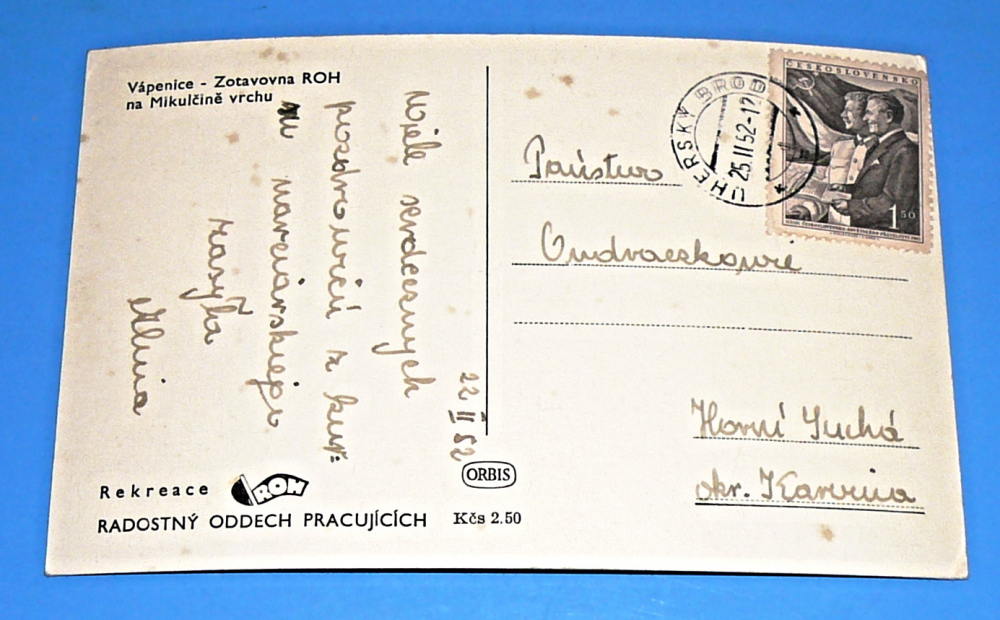 Vápenice - Zotavovna ROH
na Mikulčině vrchu
22 II 52
Wiele serdecznych
pozdrowień z kur=
su narciarskiego
zasyła
Rekreace ROH
RADOSTNÝ ODDECH PRACUJÍCÍCH
Kčs 2.50
ORBIS
UHERSKÝ BROD
25.II 52-12
ČESKOSLOVENSKO
1 50
Państwo
Ondraczkowie
Horní Suchá
okr. Karvina